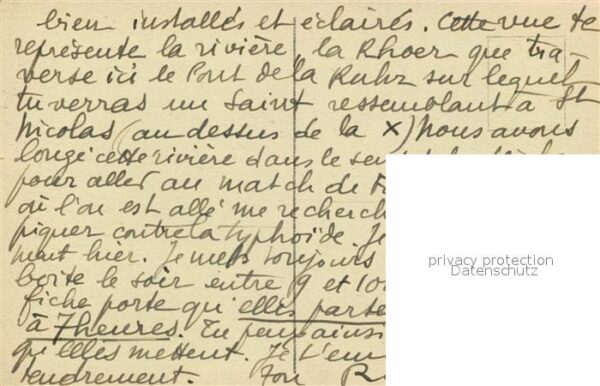 bien installés et éclairés. Cette vue te
représente la rivière, la Rhoer que tra-
verse ici le Pont de la Ruhr sur lequel
tu verras un Saint ressemblant à St
Nicolas (au dessus de la X) Nous avons
longé cette rivière dans le
pour aller au match de
où l'on est allé me recherch
piquer contre la typhoïde. Je
ment hier. Je mets toujours
boîte le soir entre 9 et 10
fiche porte qu'elles parte
à 7 heures. Tu peux ainsi
qu'elles mettent. Je t'em
tendrement. Ton R
privacy protection
Datenschutz